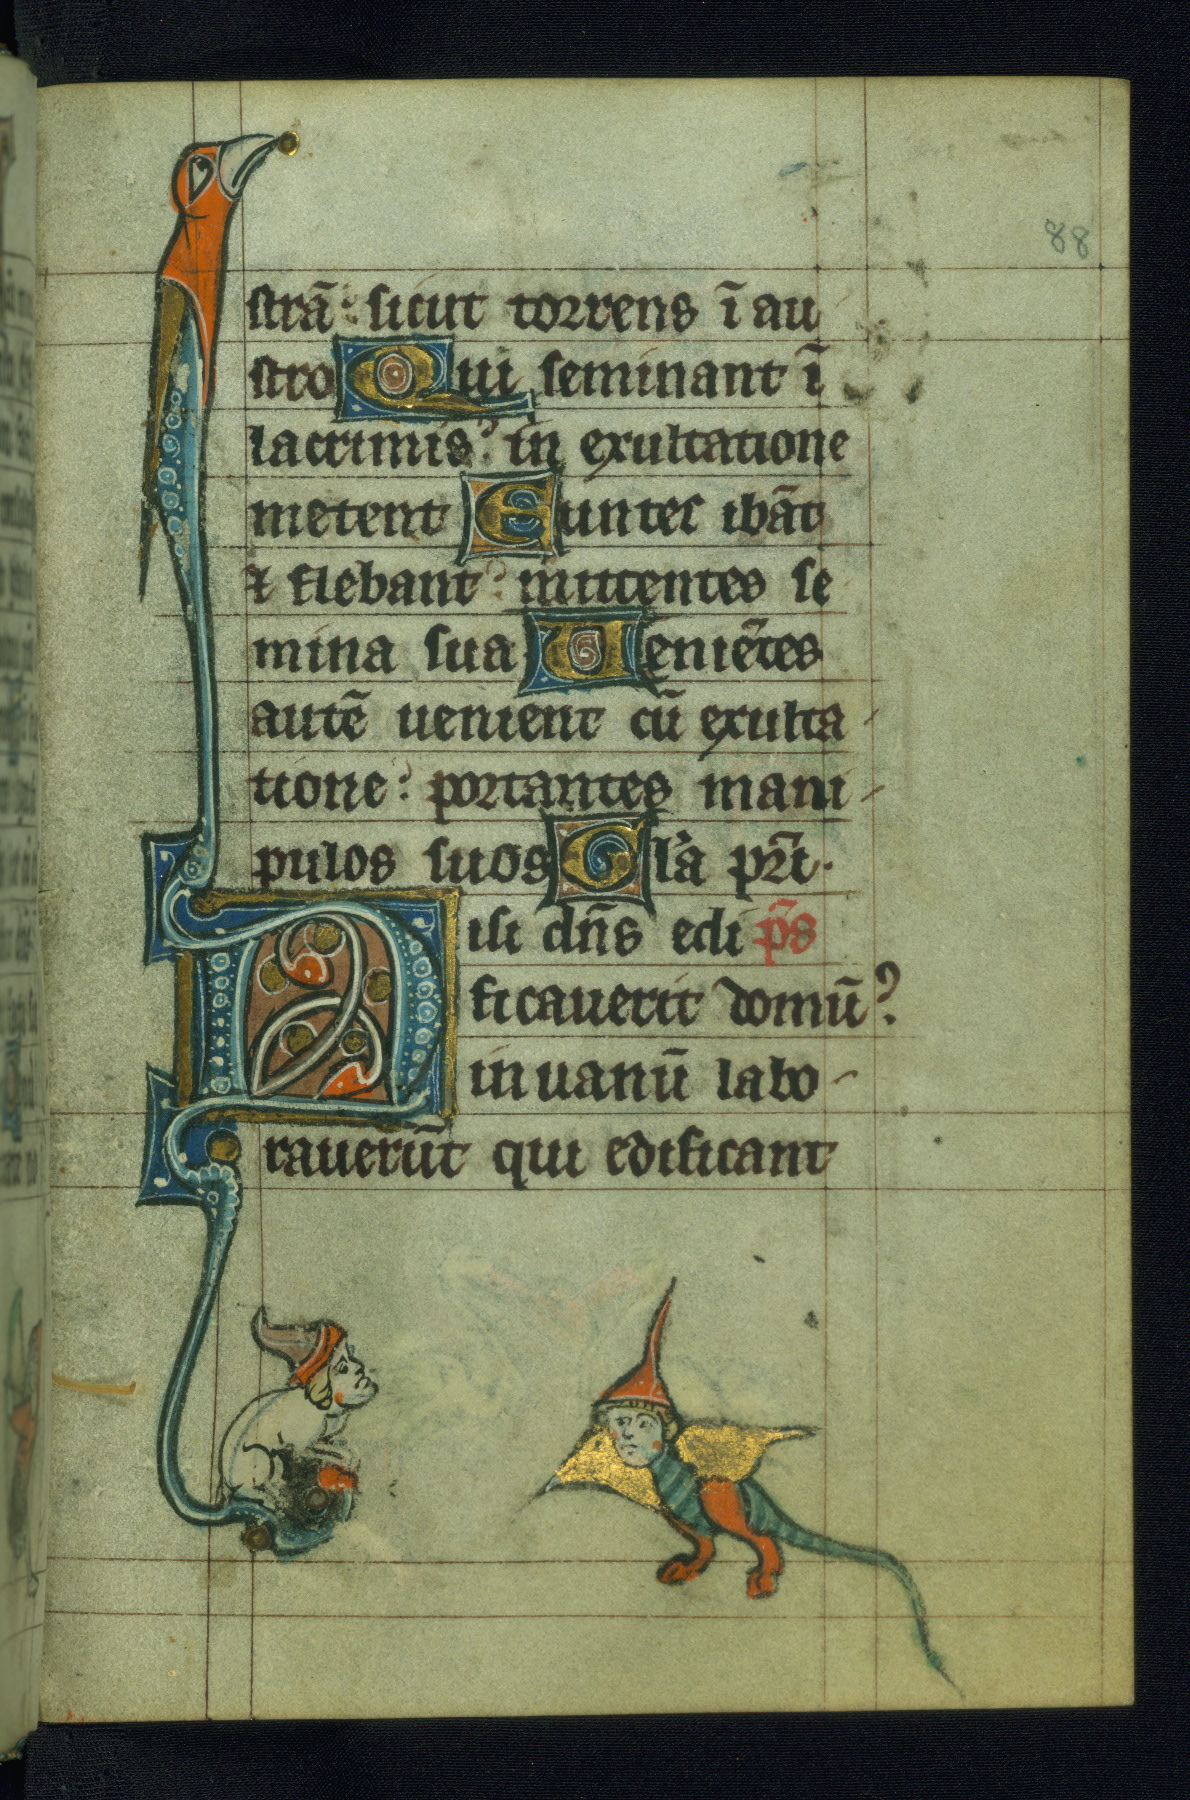 88
strã: sicut torrens ĩ au
stro Qui seminant ĩ
lacrimis: in exultatione
metent Euntes ibãt
⁊ flebant: mittentes se
mina sua Ueniẽtes
autẽ uenient cũ exulta
tione: portantes mani
pulos suos Gl'a pr̃i.
Nisi dñs edi p̃s
ficauerit domũ?
in uanũ labo
rauerũt qui edificant